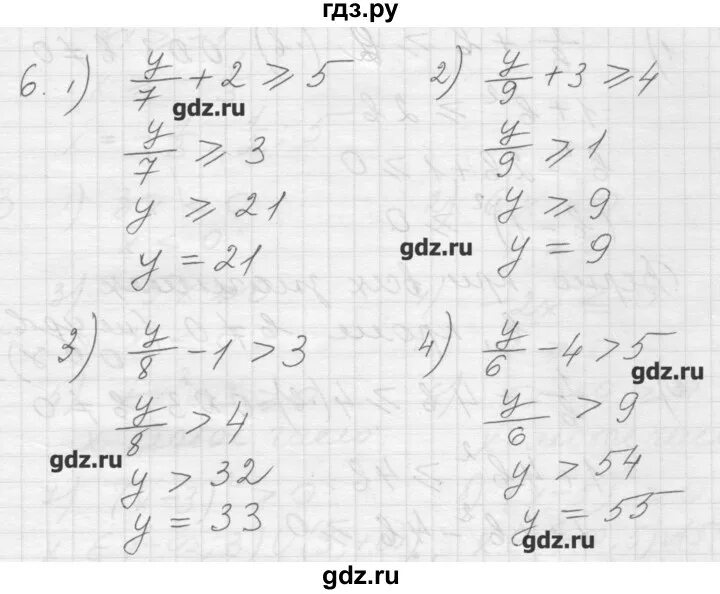 гдз.ру
6. 1) y/7 + 2 ⩾ 5
gdz.ru
y/7 ⩾ 3
y ⩾ 21
y = 21
2) y/9 + 3 ⩾ 4
y/9 ⩾ 1
y ⩾ 9
gdz.ru
y = 9
3) y/8 - 1 > 3
y/8 > 4
gdz.ru
y > 32
y = 33
4) y/6 - 4 > 5
gdz.ru
y/6 > 9
y > 54
y = 55
gdz.ru
gdz.ru